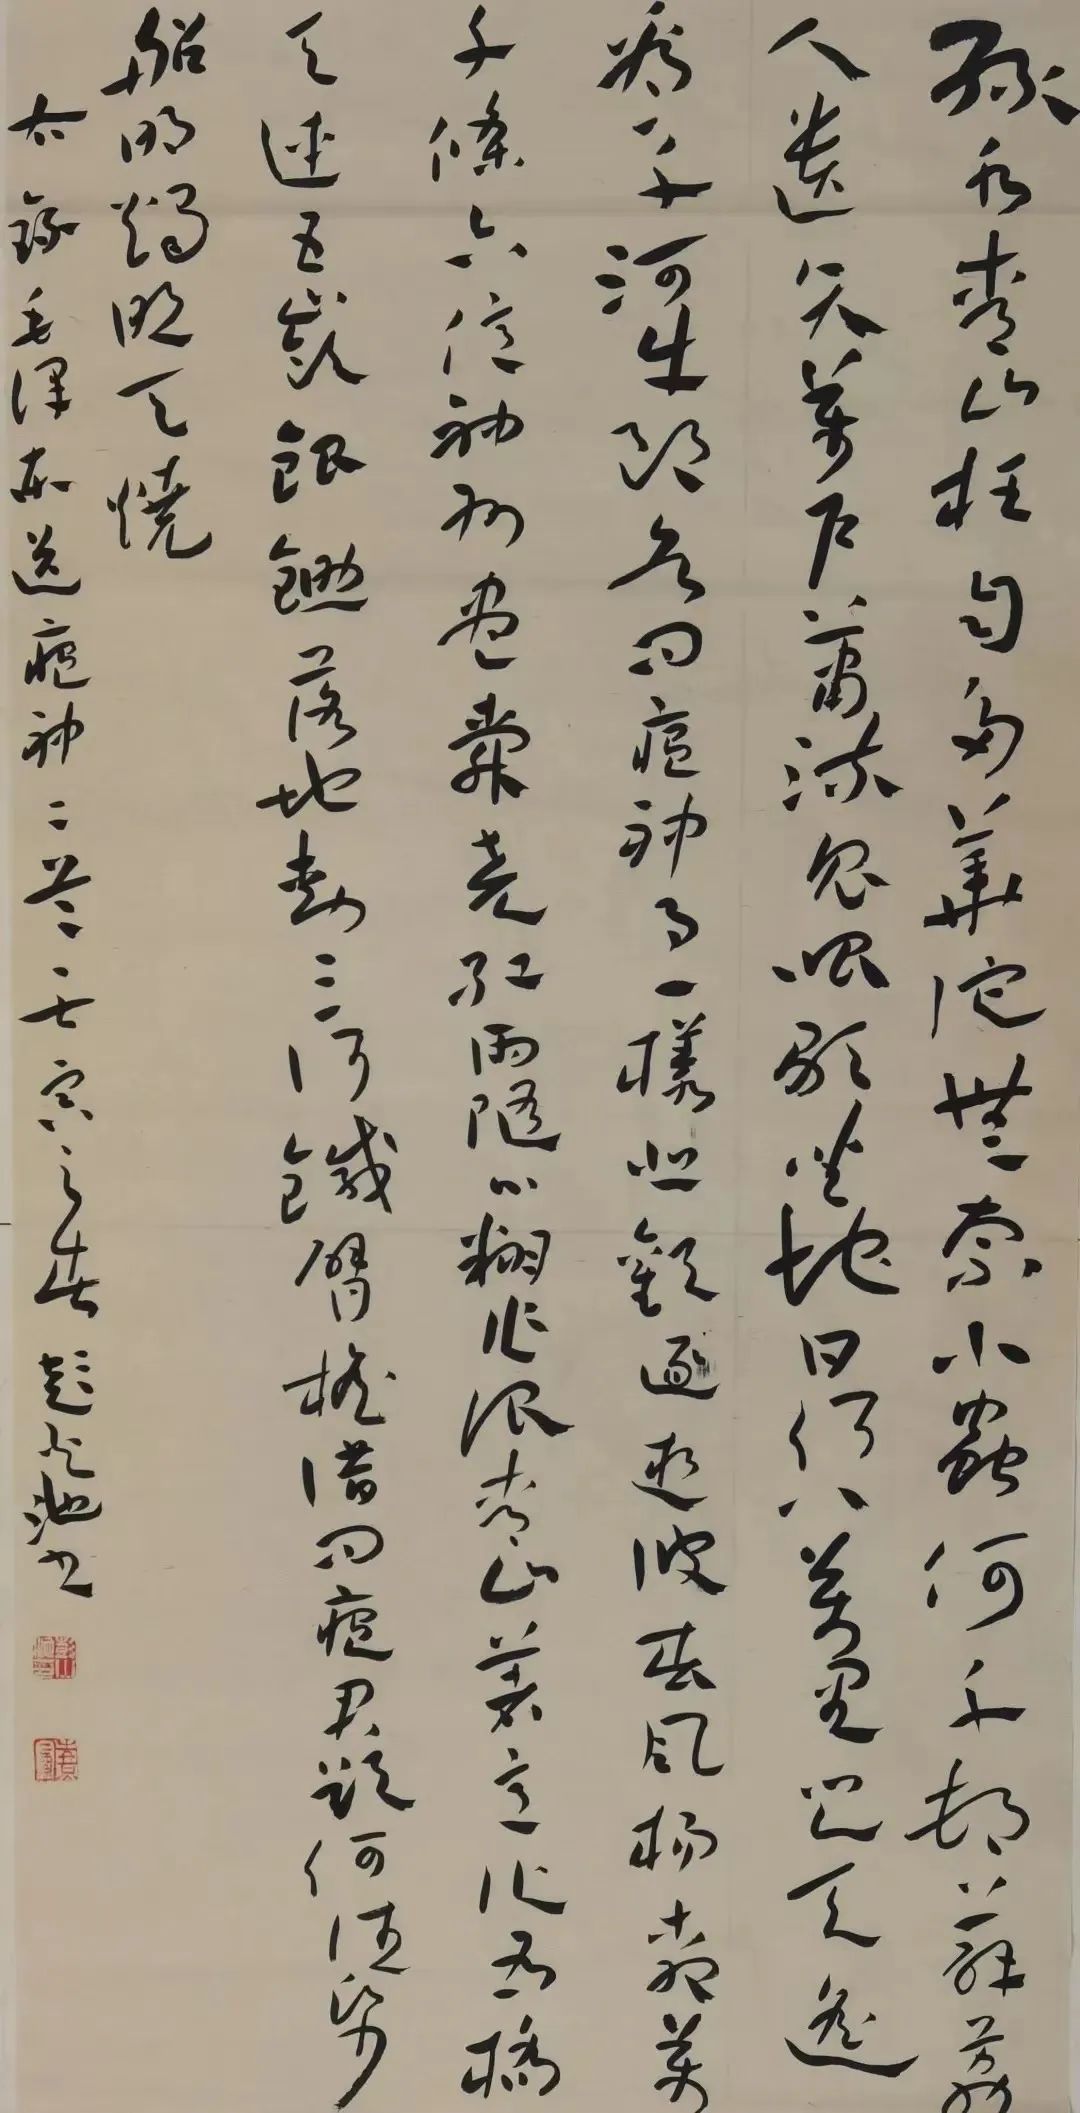 綠水青山枉自多華陀無奈小蟲何千村薜荔
人遺矢萬戶蕭疏鬼唱歌坐地日行八萬里巡天遙
看一千河牛郎欲問瘟神事一樣悲歡逐逝波春風楊柳萬
千條六億神州盡舜堯紅雨隨心翻作浪青山著意化為橋
天連五嶺銀鋤落地動三河鐵臂搖借問瘟君欲何往紙
船明燭照天燒
右錄毛澤東送瘟神二首壬寅之春彭池書